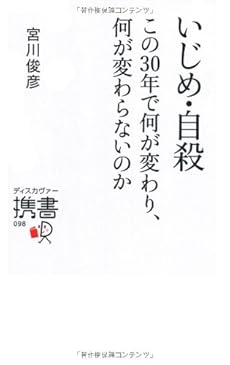 「著作権保護コンテンツ」
いじめ・自殺
この30年で何が変わり、
何が変わらないのか
宮川俊彦
ディスカヴァー
携書
098
「著作権保護コンテンツ」